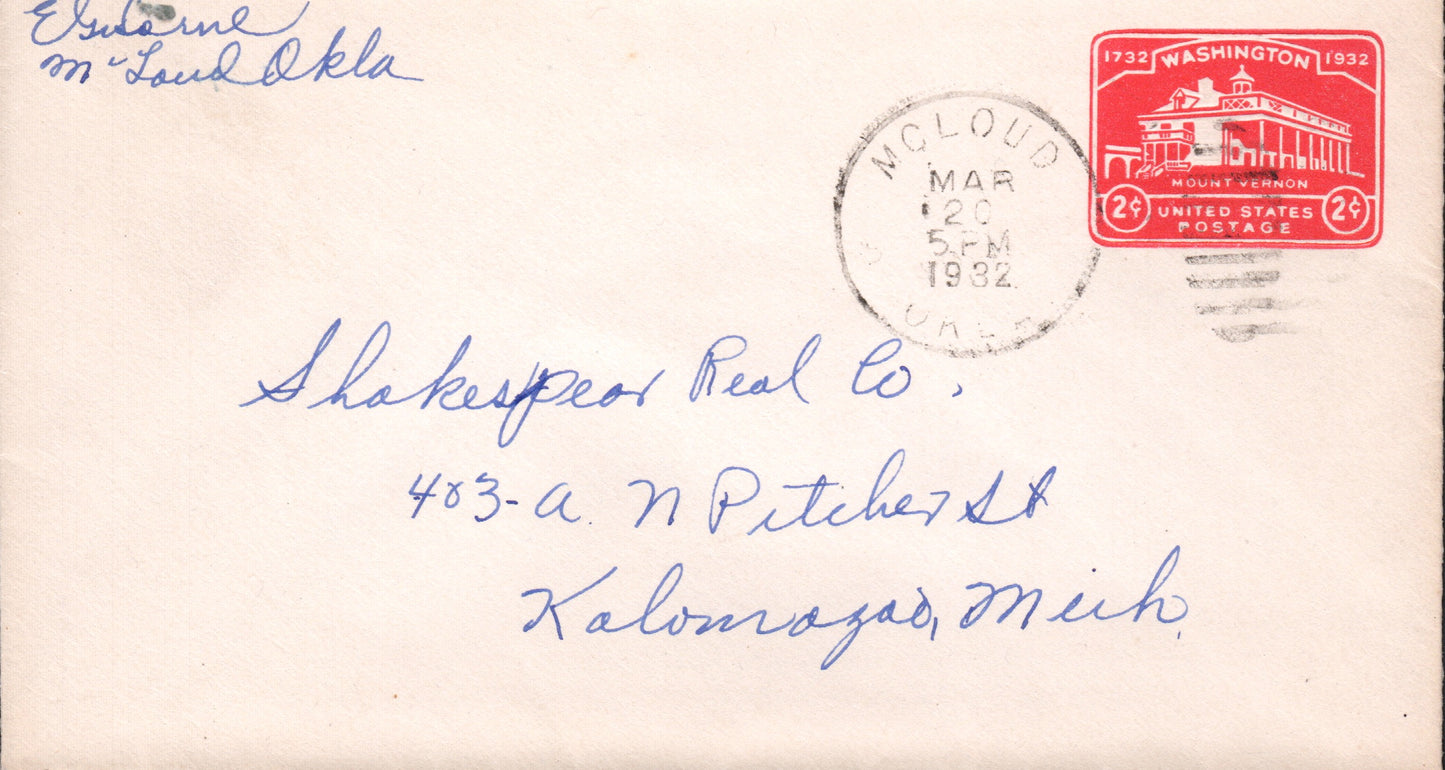 McLoud Okla
1732 WASHINGTON 1932
MOUNT VERNON
2¢ UNITED STATES 2¢
POSTAGE
MCLOUD
MAR
20
5 PM
1932
OKLA
Shakespear Real Co.
403-a. N Pitcher St
Kalomazoo, Mich.